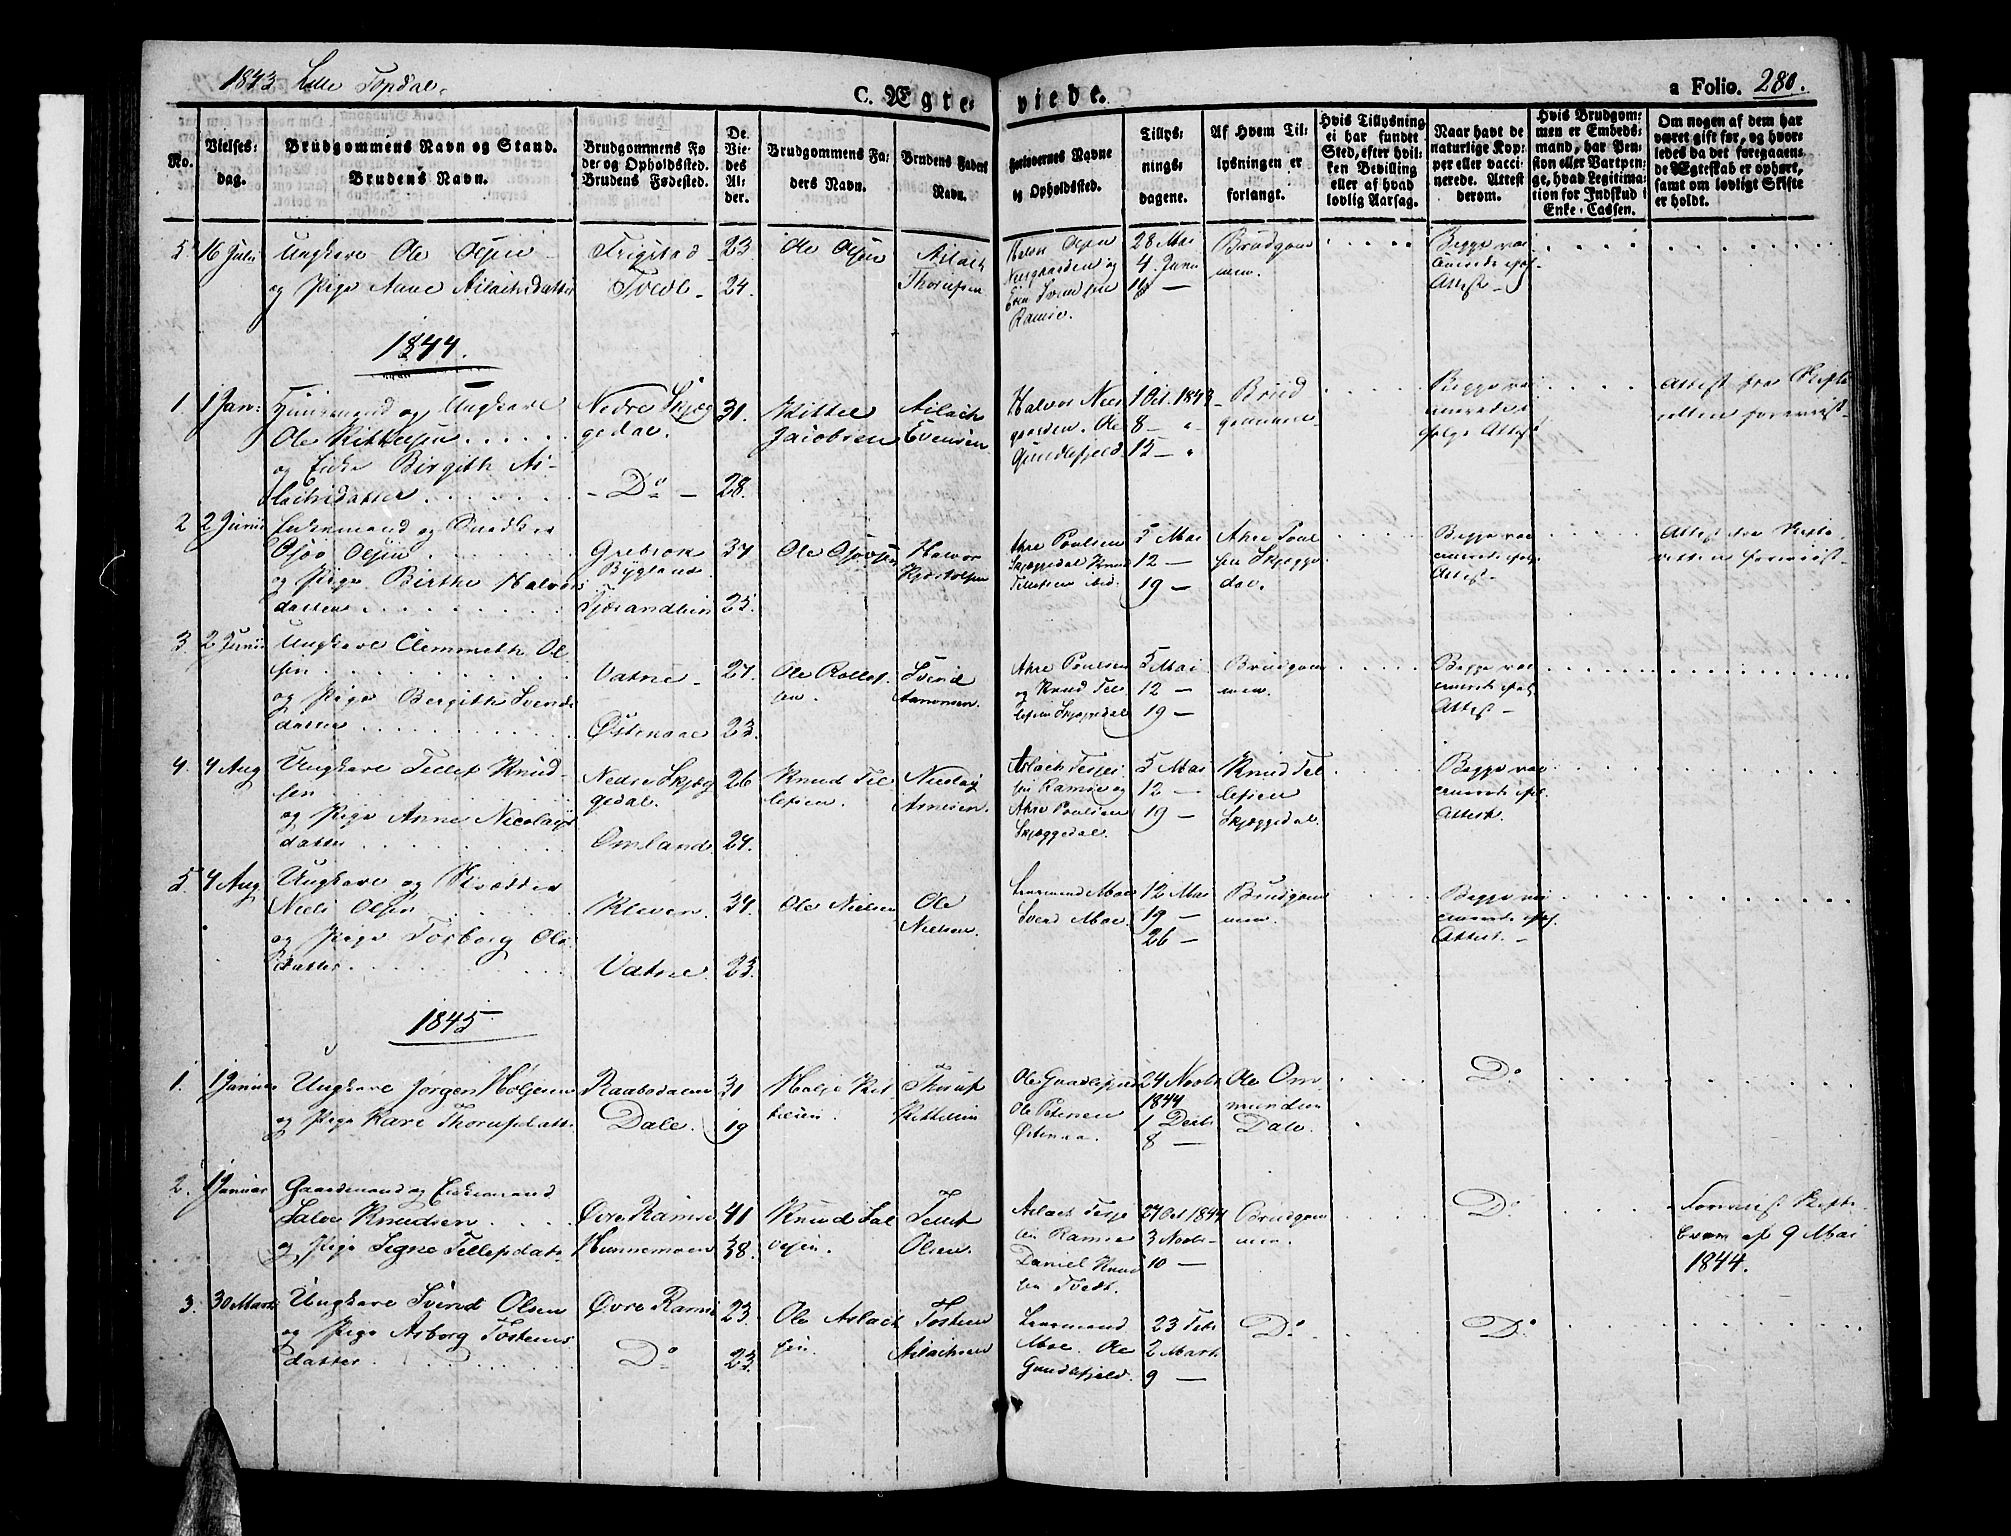 1843 Lille Topdal.
C. Ægteviede.
a Folio. 280.
No.
Vielses-
dag.
Brudgommens Navn og Stand.
Brudens Navn.
Brudgommens Fø
de- og Opholdssted.
Brudens Fødested.
De
Vie-
des
Al-
der.
Brudgommens Fa-
ders Navn.
Brudens Faders
Navn.
Forlovernes Navne
og Opholdssted.
Tillys-
nings-
dagene.
Af Hvem Til-
lysningen er
forlangt.
Hvis Tillysning
ei har fundet
Sted, efter hvil-
ken Bevilling
eller af hvad
lovlig Aarsag.
Naar havt de
naturlige Kop-
per eller vacci-
nerede. Attest
derom.
Hvis Brudgom-
men er Embeds-
mand, har Pen-
sion eller Vartpen-
ge, hvad Legitima-
tion for Indskud i
Enke-Cassen.
Om nogen af dem har
været gift før, og hvor-
ledes da det foregaaen-
de Ægteskab er ophørt,
samt om lovligt Skifte
er holdt.
5 16 Juli Ungkarl Ole Olsen
og Pige Aane Aslachsdatter
Trigstad
Tvedt
23
24.
Ole Olsen
Aslach
Thorufsen
Halvor Olsen
Neegaarden og
Even Svendsen
Ramse.
28 Mai
4. Juni
11 —
Brudgom
men.
Begge vac
cinerede ifølg
Attest
1844.
1. 1 Jan:
Huusmand og Ungkarl
Ole Kittelsen
og Enke Birgith As-
lachsdatter
Nedre Skjæg
gedal.
Do
31.
28.
Kittel
Jacobsen
Aslach
Evensen
Halvor Nees
gaarden. Ole
Gundlefjeld
1 Oct. 1843
8 — "
15 — "
Brud
gommen
Begge vac
cinerede i
følge Attest
Attest fra Skifte
retten foreviist
2 2 Junii
Enkemand og Snedker
Osov Olsen
og Pige Birthe Halvors
datter
Grebrok
Bygland
Tjørandlien
37
25.
Ole Osovsen
Halvor
Kjøstolfsen
Akre Poulsen
Skjæggedal Knud
Tellefsen ibid.
5 Mai
12 —
19 —
Akre Poul
sen Skjægge
dal.
Begge vac
cinerede ifølg
Attest
Attest fra Skifte
retten foreviist
3 2 Junii
Ungkarl Clemmeth Ol
sen
og Pige Bergith Svends
datter
Vatne
Østenaae
27.
23.
Ole Rollef
sen.
Svend
Aanonsen.
Akre Poulsen
og Knud Tel
lefsen Skjæggedal
5 Mai
12 —
19 —
Brudgom
men.
Begge vac
cinerede ifølg
Attest
4. 4 Aug
Ungkarl Tellef Knud-
sen
og Pige Anne Nicolays
datter
Nedre Skjæg
gedal.
Omland.
26
24.
Knud Tel
lefsen.
Nicolay
Arnesen.
Aslach Terjes
sen Ramse og
Akre Poulsen
Skjæggedal.
5 Mai
12 —
19 —
Knud Tel
lefsen
Skjæggedal.
Begge vac
cinerede ifølg
Attest.
5. 4 Aug
Ungkarl og Skrædder
Niels Olsen
og Pige Torborg Ols
datter
Kleven.
Vatne
34.
23.
Ole Nielsen
Ole
Nielsen.
Lensmand Moe
Svend Moe
12 Mai
19 —
26 —
Brudgom
men.
Begge vac
cinerede ifølg
Attest.
1845
1. 1 Januar
Ungkarl Jorgen Holjesen
og Pige Kari Thorufsdatt.
Raabodalen
Dale.
31
19
Holje Kit
telsen.
Thoruf
Kittelsen
Ole Gundlefjeld
Ole Petersen
Østenaa.
24 Novbr
1844
1 Decbr
8 —
Ole Om
mundsen
Dale.
Do
2. 1 Januar
Gaardmand og Enkemand
Salve Knudsen
og Pige Signe Tellefsdatt
Øvre Ramse
Hunnemoen
41
38.
Knud Sal
vesen.
Tellef
Olsen.
Aslach Terje
sen Ramse
Daniel Knud
sen Tvedt.
27 Oct 1844
3 Novbr
10 —
Brudgom
men.
Do
Foreviist Skifte
brev af 9 Mai
1844.
3. 30 Marts
Ungkarl Svend Olsen
og Pige Asborg Tostens
datter.
Øvre Ramse
Do
23.
23.
Ole Aslach
sen.
Tosten
Aslachsen
Lensmand
Moe. Ole
Gundlefjeld.
23 Febr
2 Marts
9 —
Do
Do